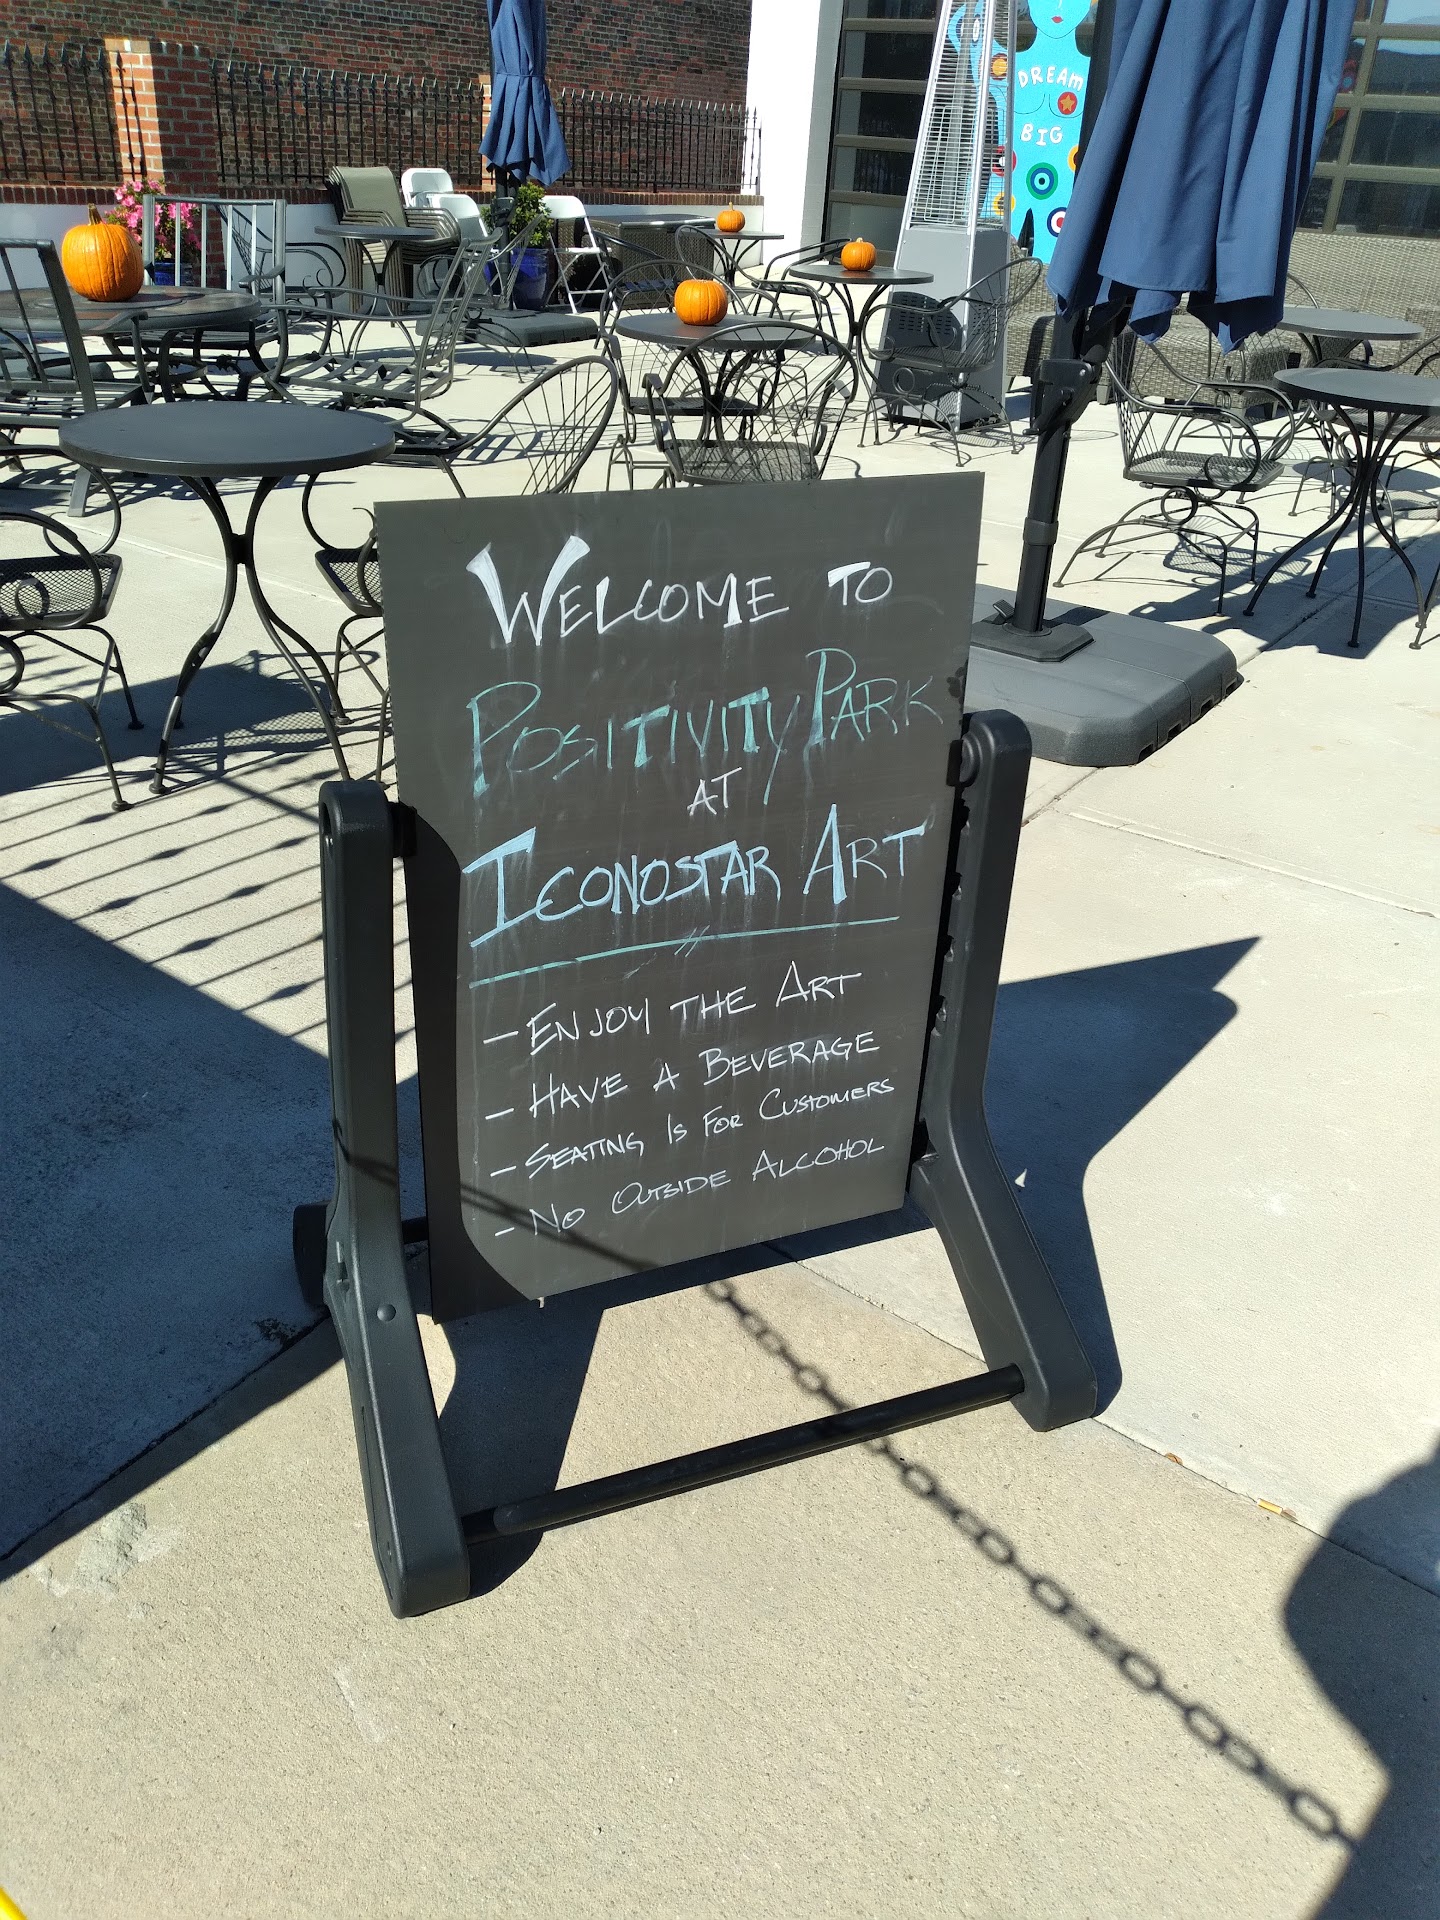 DREAM
BIG
WELCOME TO
POSITIVITY PARK
AT
ICONOSTAR ART
- ENJOY THE ART
- HAVE A BEVERAGE
- SEATING IS FOR CUSTOMERS
- NO OUTSIDE ALCOHOL